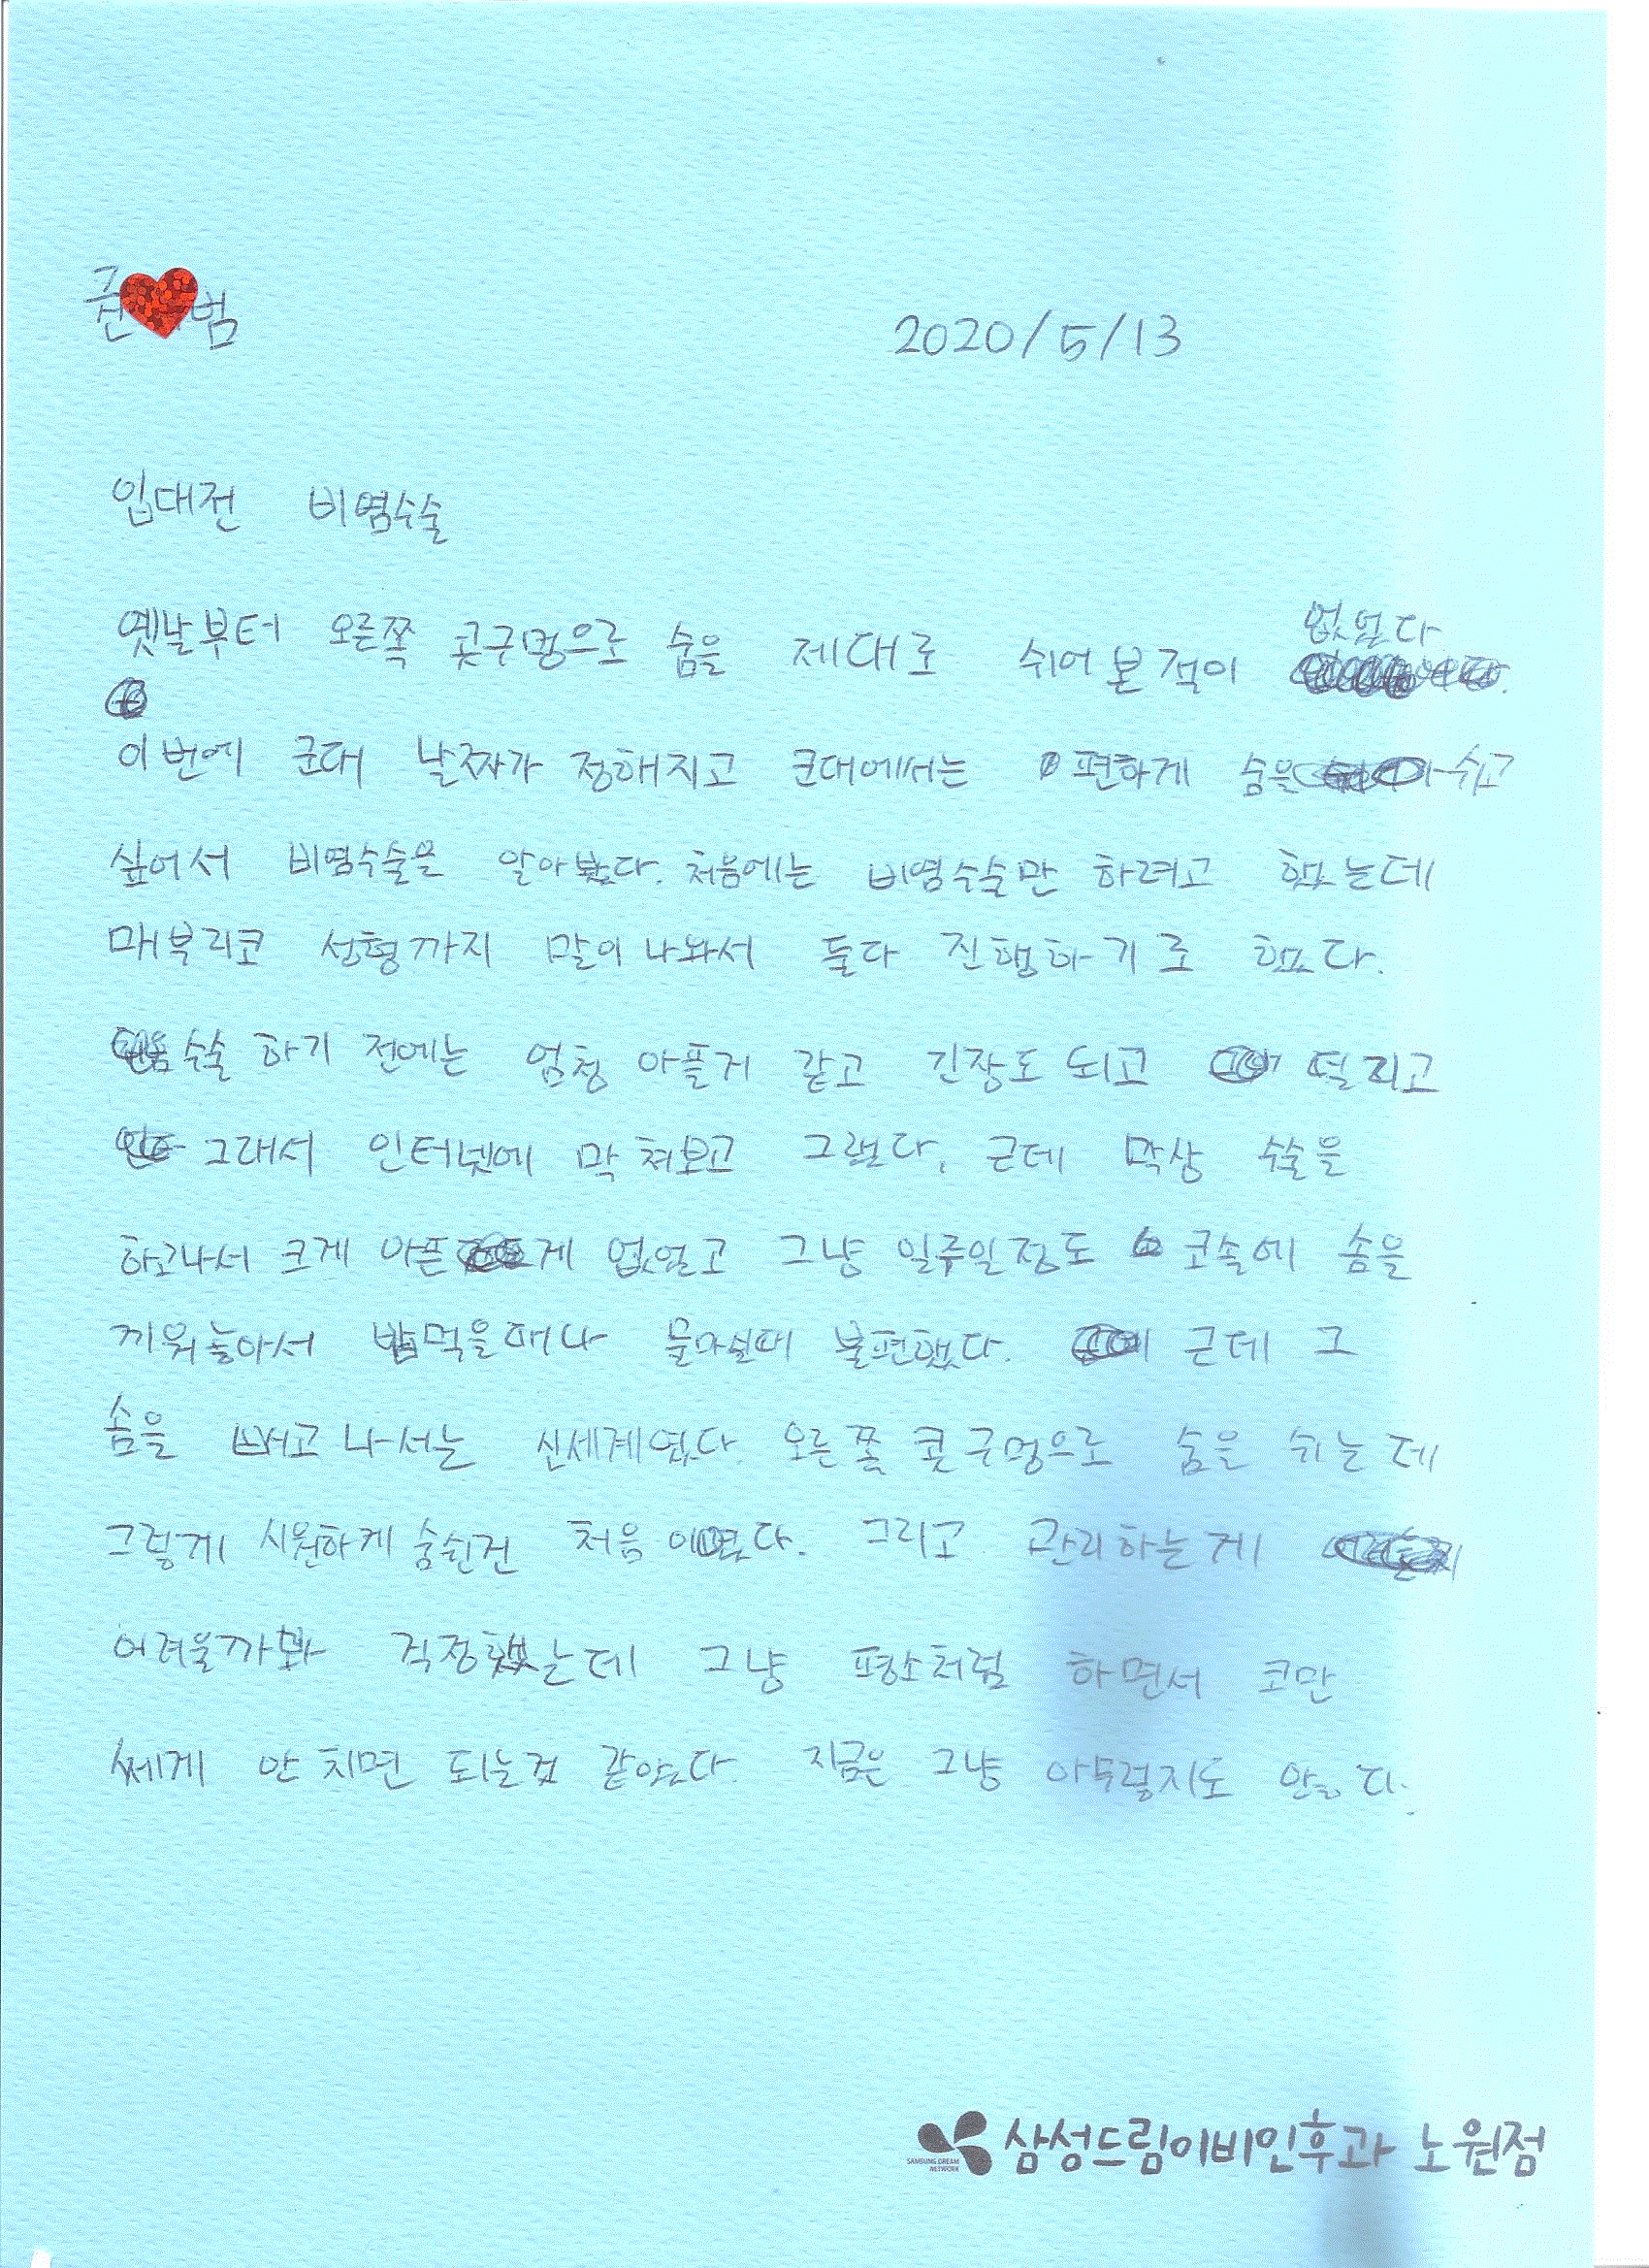 권 범
2020/5/13
입대전 비염수술
옛날부터 오른쪽 콧구멍으로 숨을 제대로 쉬어본적이 없었다
이번에 군대 날짜가 정해지고 군대에서는 편하게 숨을 쉬고
싶어서 비염수술을 알아봤다. 처음에는 비염수술만 하려고 했는데
매부리코 성형까지 말이나와서 둘다 진행하기로 했다.
수술 하기 전에는 엄청 아플거 같고 긴장도 되고 떨리고
그래서 인터넷에 막 쳐보고 그랬다. 근데 막상 수술을
하고나서 크게 아픈게 없었고 그냥 일주일정도 코속에 솜을
끼워놓아서 밥먹을때나 물마실때 불편했다. 근데 그
솜을 빼고 나서는 신세계였다. 오른쪽 콧구멍으로 숨을 쉬는데
그렇게 시원하게 숨쉰건 처음이였다. 그리고 관리하는게
어려울까봐 걱정했는데 그냥 평소처럼 하면서 코만
쎄게 안치면 되는것 같았다. 지금은 그냥 아무렇지도 않다.
SAMSUNG DREAM NETWORK
삼성드림이비인후과 노원점